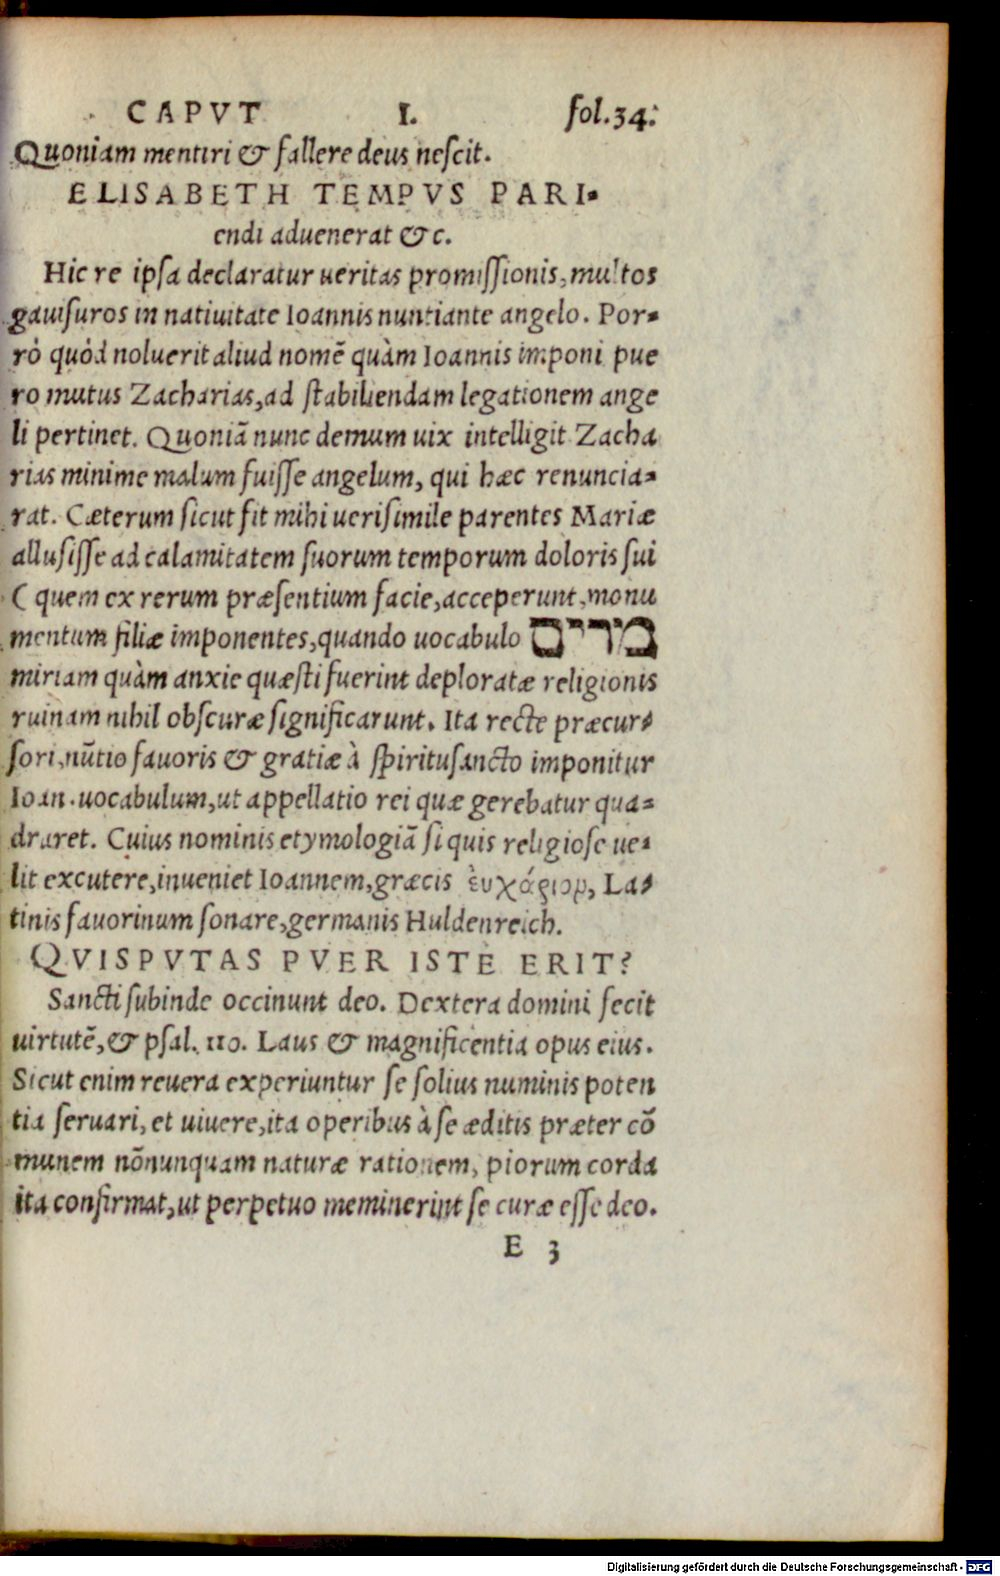 CAPVT I. fol.34.
Quoniam mentiri & fallere deus nescit.
ELISABETH TEMPVS PARI-
endi aduenerat &c.
Hic re ipsa declaratur ueritas promissionis, multos
gauisuros in natiuitate Ioannis nuntiante angelo. Por-
rò quòd noluerit aliud nomẽ quàm Ioannis imponi pue
ro mutus Zacharias, ad stabiliendam legationem ange
li pertinet. Quoniã nunc demum uix intelligit Zacha
rias minime malum fuisse angelum, qui hæc renuncia-
rat. Cæterum sicut fit mihi uerisimile parentes Mariæ
allusisse ad calamitatem suorum temporum doloris sui
( quem ex rerum præsentium facie, acceperunt, monu
mentum filiæ imponentes, quando uocabulo מרים
miriam quàm anxie quæsti fuerint deploratæ religionis
ruinam nihil obscuræ significarunt. Ita recte præcur-
sori, nũtio fauoris & gratiæ à spiritusancto imponitur
Ioan. uocabulum, ut appellatio rei quæ gerebatur qua-
draret. Cuius nominis etymologiã si quis religiose ue-
lit excutere, inueniet Ioannem, græcis ἐυχάριομ, La-
tinis fauorinum sonare, germanis Huldenreich.
QVISPVTAS PVER ISTE ERIT?
Sancti subinde occinunt deo. Dextera domini fecit
uirtutẽ, & psal. 110. Laus & magnificentia opus eius.
Sicut enim reuera experiuntur se solius numinis poten
tia seruari, et uiuere, ita operibus à se æditis præter cõ
munem nõnunquam naturæ rationem, piorum corda
ita confirmat, ut perpetuo meminerint se curæ esse deo.
E 3
Digitalisierung gefördert durch die Deutsche Forschungsgemeinschaft - DFG